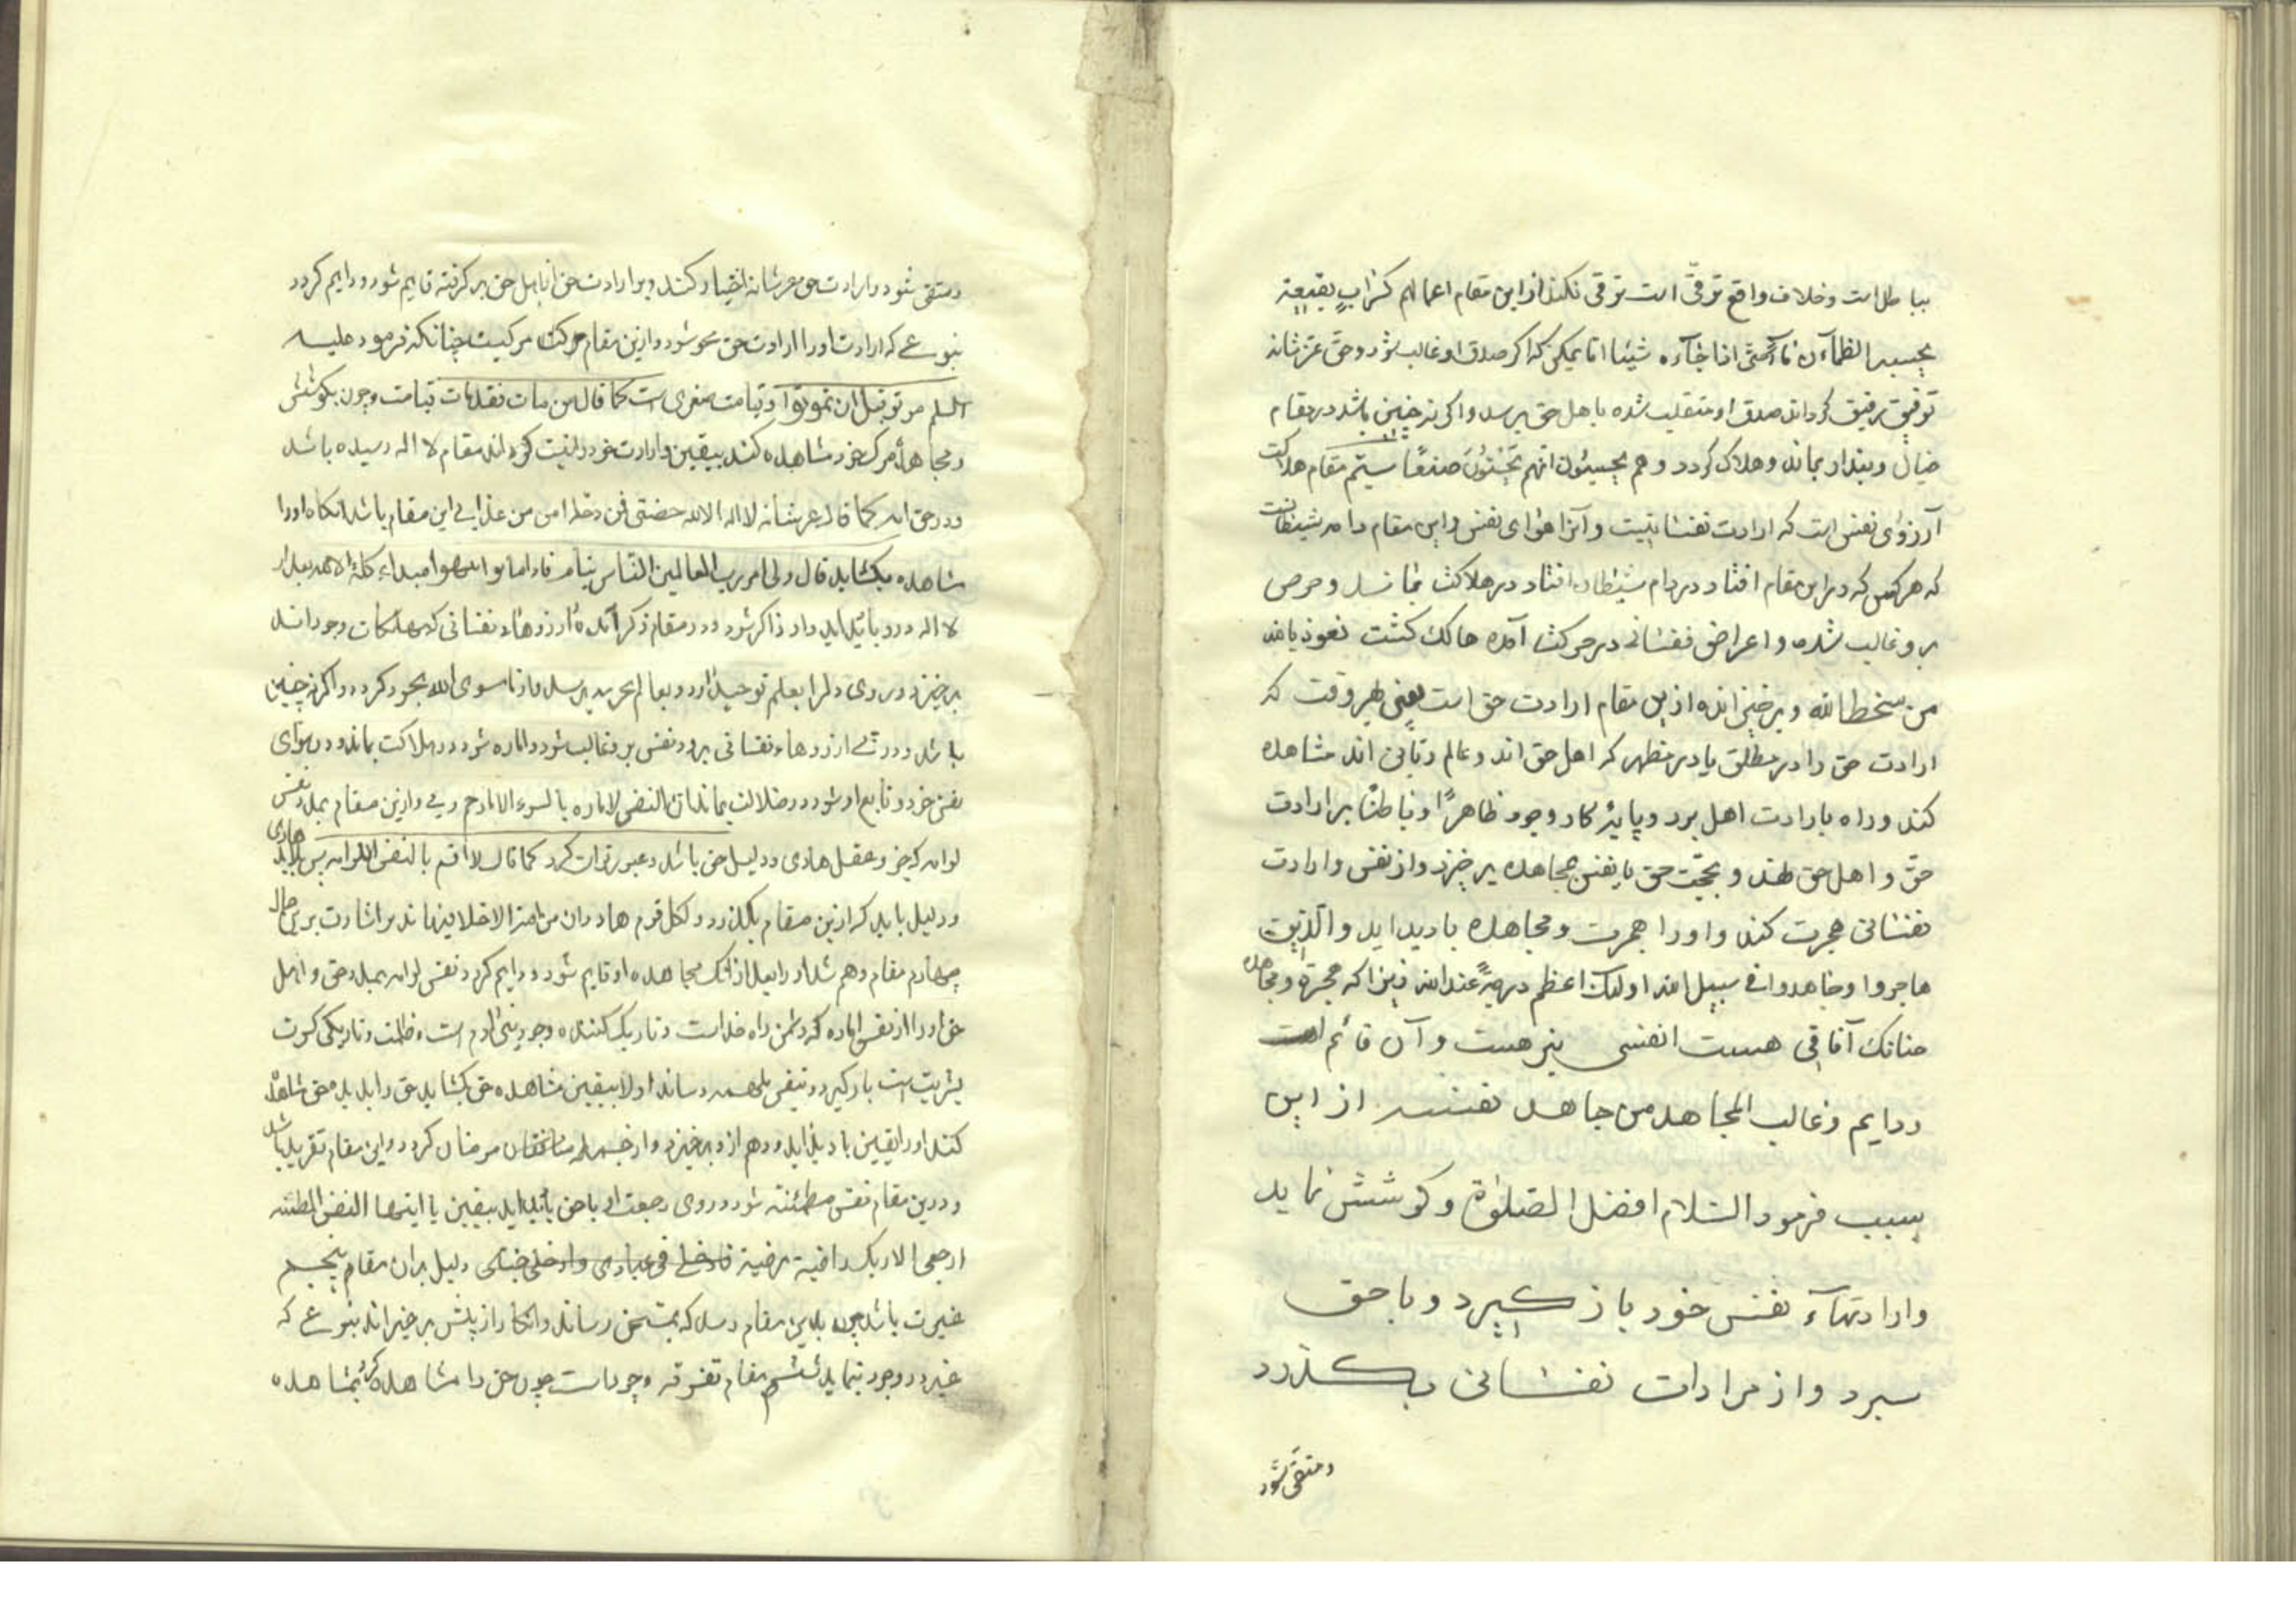 بباطل است و خلاف واقع توقی است توقی نکند از این مقام اعمالهم کسراب بقیعة
یحسبه الظمآن مآء حتّی اذا جآءه شیئا اما یمکن که اکر صدق او غالب شود و حق عزّ شانه
توفیق رفیق کرداند صدق او منقلب شده باهل حق برسد واکر نه چنین باشد در مقام
خیال و پندار بماند و هلاک کردد و هم یحسبون انهم یحسنون صنعًا سیّم مقام هلاکت
آرزوی نفس است که ارادت نفسانیست و آنرا هوای نفس و این مقام دام شیطانست
که هر کس که در این مقام افتاد در دام شیطان افتاد در هلاکت بماند و حرص
برو غالب شده و اعراض نفسانی در حرکت آمده هالک کشت نعوذ بالله
من سخط الله و برخیزاننده از این مقام ارادت حق است یعنی بهر وقت که
ارادت حق را در مطلق یا در مظهر که اهل حق اند و عالم ربّانی اند مشاهده
کند و راه بارادت اهل برد و کار وجود ظاهرًا و باطنًا بر ارادت
حق و اهل حق نهد و بحجّت حق با نفس بمجاهده برخیزد و از نفس و ارادت
نفسانی هجرت کند و اورا هجرت و مجاهده بادید اید و الّذین
هاجروا و جاهدوا فی سبیل الله اولئک اعظم درجةً عند الله زیرا که هجرة و مجاهده
چنانک آفاقی هست انفسی نیز هست و آن قائم است
و دایم و غالب المجاهد من جاهد نفسه از این
بسبب فرمود السّلام افضل الصّلوٰة و کوشش نماید
و ارادتهآء نفس خود باز کیرد و با حق
سپرد و از مرادات نفسانی بکذرد
و متّقی شود
و متقی شود و ارادت حق عز شانه اختیار کند و بر ارادت حق با اهل حق بر کرفته قایم شود و دایم کردد
بنوعی که ارادت او را ارادت حق محو شود و ازین مقام حرکت مرکیست چنانکه فرمود علیه
السلم موتوا قبل ان تموتوا و قیامت صغری است کما قال من مات فقد قامت قیامت و چون بکوشش
و مجاهدة مرک خود مشاهده کند بیقین و ارادت خود نیست کرداند مقام لا اله رسیده باشد
و در حق کما قال عز شانه لا اله الا الله حصنی فمن دخله امن من عذابی این مقام باشد انکاه اورا
مشاهده بکشاید قال ولی امر رب العالمین الناس نیام فاذا ماتوا انتبهوا مبداء کلمه الا الله بعد از
لا اله درو بادید اید و از ذاکر شود و در مقام ذکر آینده ارزوهاء نفسانی که مهلکات وجوداند
برخیزد و روی دلرا بعلم توحید ارد و بعالم تجرید برسد و از ما سوی الله مجرد کردد و اکر نه چنین
باشد و در پی ارزوهاء نفسانی برود نفس برو غالب شود و اماره شود و در هلاکت بماند و در هوای
نفس خرد و تابع او شود در ضلالت بماند ان النفس لاماره بالسوء الا ما رحم ربی و ازین مقام بمدد نفس
لوامه که جز و عقل هادی و دلیل حق باشد و عبور توان کرد کما قال لا اقسم بالنفس اللوامه پس هادی باید
و دلیل باید که ازین مقام بکذرد و لکل قوم هاد و ان من امة الا خلا فیها نذیر اشارت برین حال
چهارم مقام وهم شد او را بعد از انک مجاهده او قایم شود و دایم کردد نفس لوامه بمدد حق و اهل
حق اورا از نفس اماره که دشمن راه خداست و تاریک کننده وجود بنی ادم است و ظلمت و تاریکی کسوت
بشریت است باز کیرد و بنفس ملهمه رساند اولا بیقین مشاهده حق بکشاید حق را بدید حق شاهد
کند اورا یقین بادید اید و وهم ازو برخیزد و از جمله مؤمنان کردد و این مقام تقریب باشد
و درین مقام نفس مطمئنه شود و روی رجعت او با حق بادید اید بیقین یا ایتها النفس المطمئنه
ارجعی الا ربک راضیة مرضیة فادخلی فی عبادی و ادخلی جنتی دلیل بران مقام پنجم
غیرت باشد چون بدین مقام رسد که بمستحق رساند و انکار از پیش برخیزاند بنوعی که
غیر در وجود ننماید ششم مقام تفرقه وجودست چون حق را مشاهده کرد بمشاهده